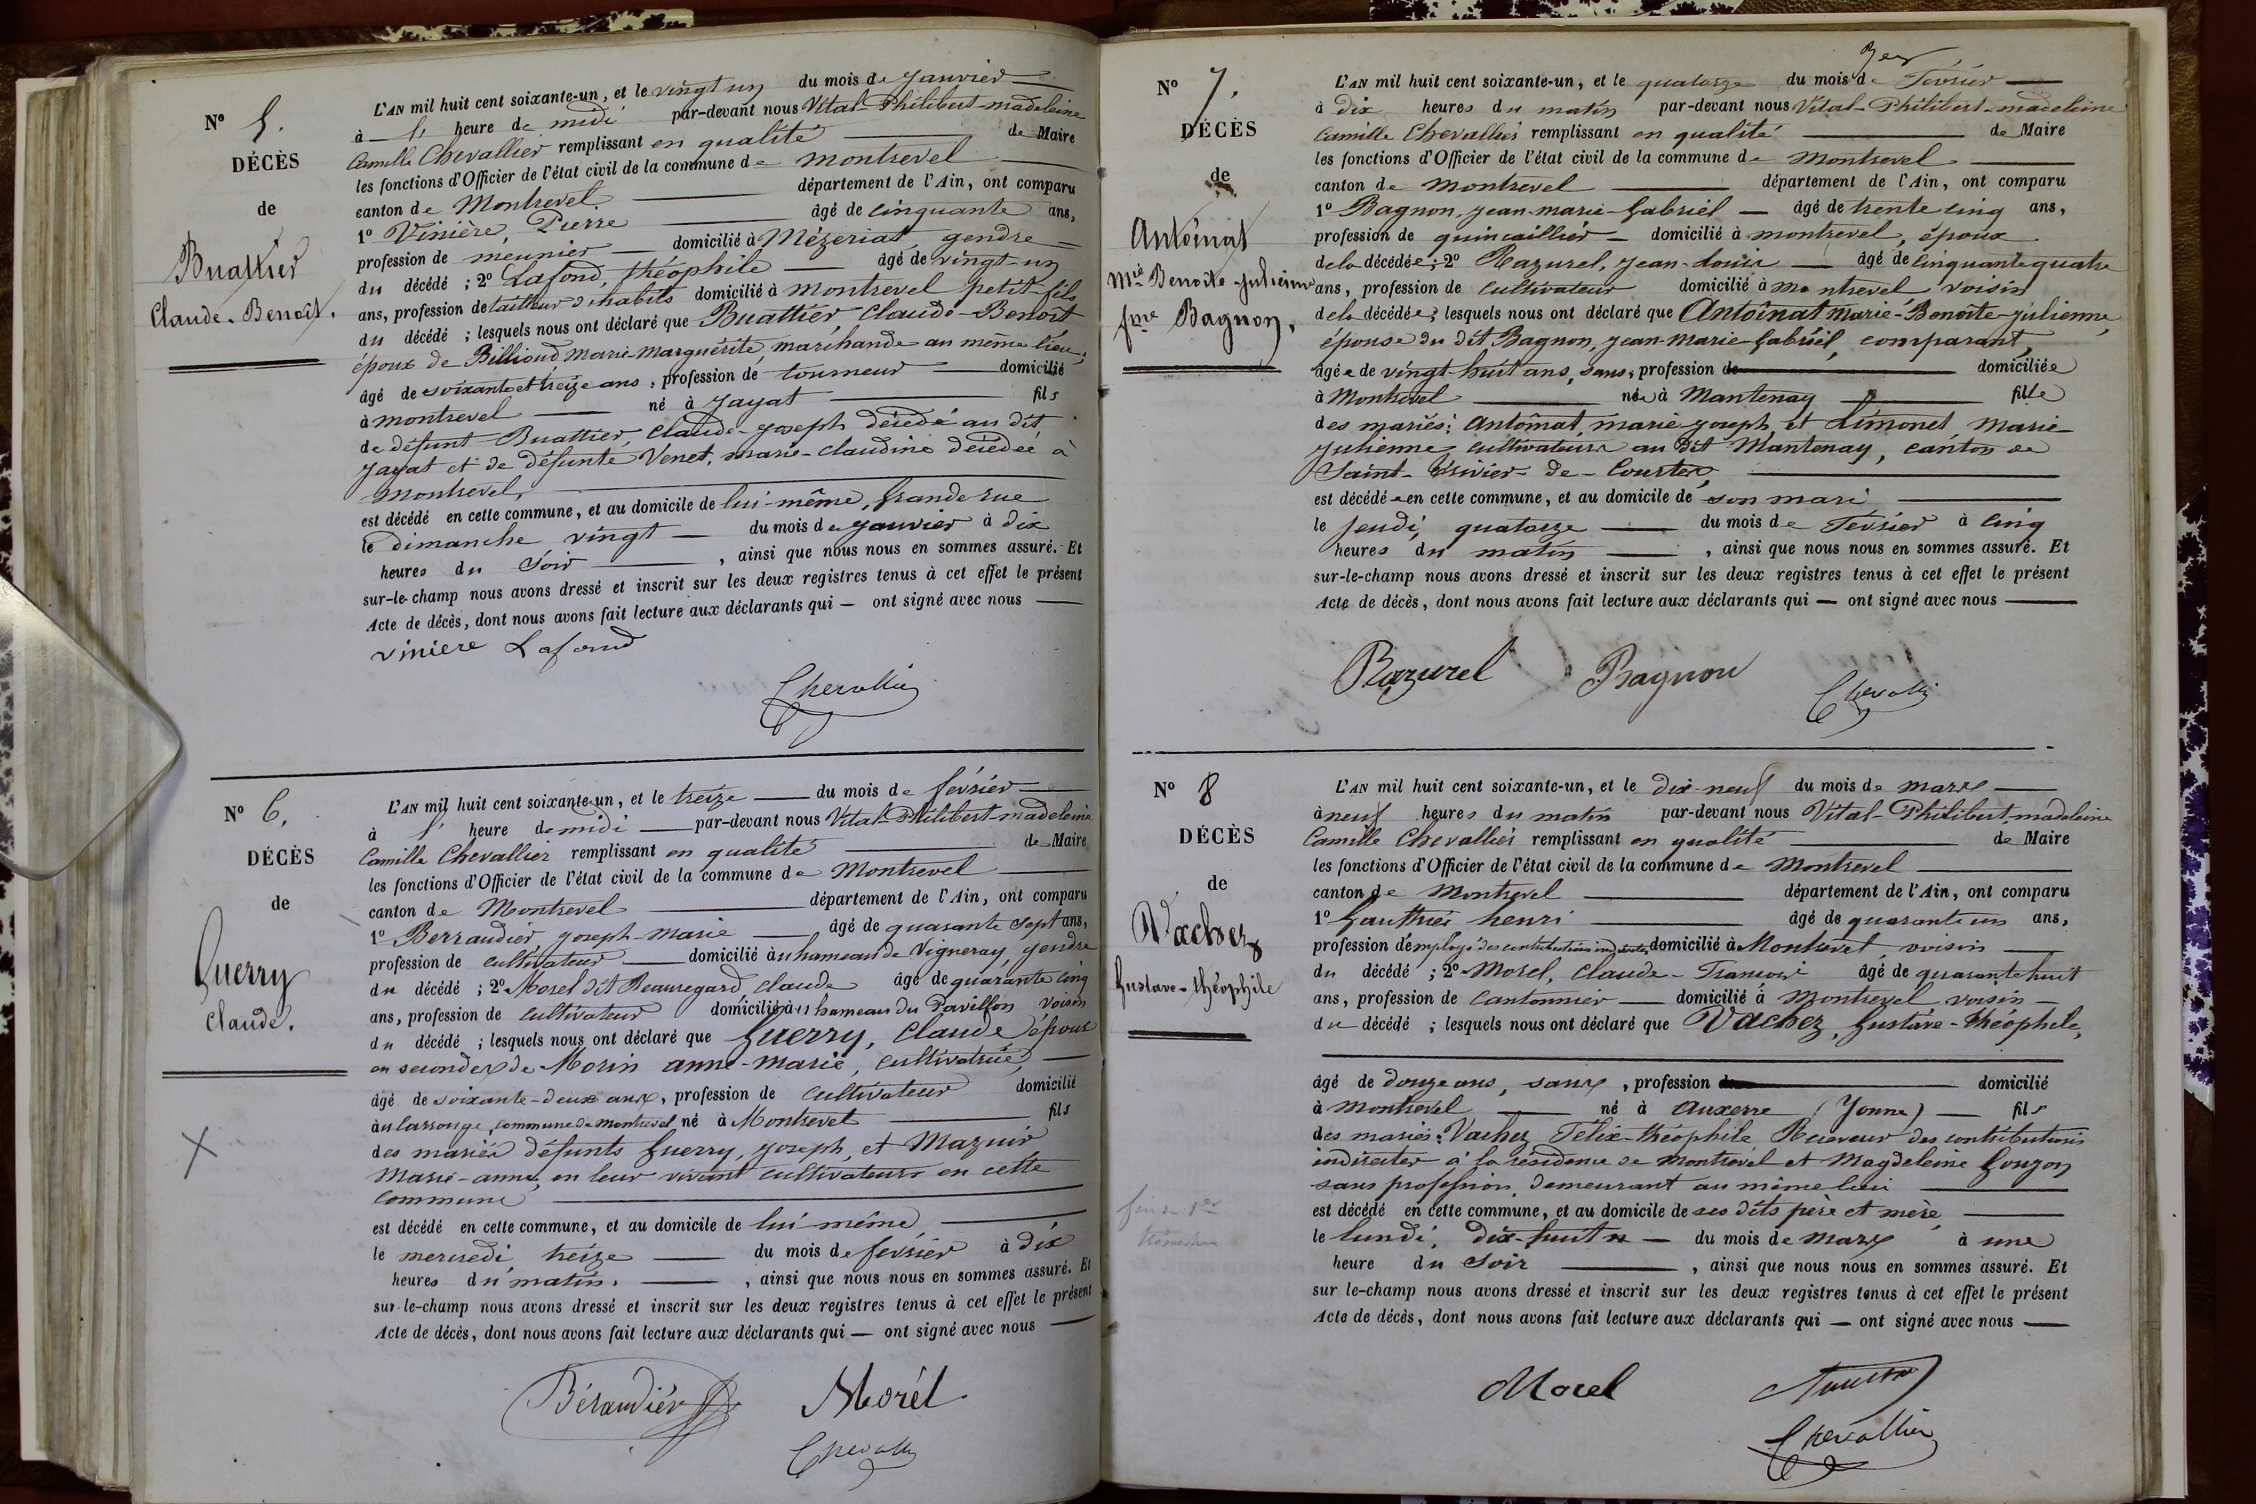 N° 5.
DÉCÈS
de
Buattier
Claude-Benoît.
L'AN mil huit cent soixante-un, et le vingt un du mois de Janvier
à 1 heure de midi par-devant nous Vital-Philibert-madeleine
Camille Chevallier remplissant en qualité de Maire
les fonctions d'Officier de l'état civil de la commune de montrevel
canton de Montrevel département de l'Ain, ont comparu
1° Vinière, Pierre âgé de cinquante ans,
profession de meunier domicilié à Mézeriat, gendre
du décédé ; 2° Lafond, théophile âgé de vingt-un
ans, profession de tailleur d'habits domicilié à montrevel petit-fils
du décédé ; lesquels nous ont déclaré que Buattier Claude-Benoît
époux de Billioud Marie-Marguérite, marchande au même lieu,
âgé de soixante et treize ans, profession de tourneur domicilié
à montrevel né à Jayat fils
de défunt Buattier, Claude-Joseph décédé au dit
Jayat et de défunte Venet, marie-Claudine décédée à
montrevel,
est décédé en cette commune, et au domicile de lui-même, grande rue
le dimanche vingt du mois de janvier à dix
heures du soir , ainsi que nous nous en sommes assuré. Et
sur-le-champ nous avons dressé et inscrit sur les deux registres tenus à cet effet le présent
Acte de décès, dont nous avons fait lecture aux déclarants qui — ont signé avec nous
viniere Lafond
Chevallier
N° 6.
DÉCÈS
de
Guerry
Claude.
L'AN mil huit cent soixante-un, et le treize du mois de février
à 1 heure de midi par-devant nous Vital-Philibert-madeleine
Camille Chevallier remplissant en qualité de Maire
les fonctions d'Officier de l'état civil de la commune de Montrevel
canton de Montrevel département de l'Ain, ont comparu
1° Berraudier, joseph-marie âgé de quarante sept ans,
profession de cultivateur domicilié au hameau de Vigneray, gendre
du décédé ; 2° Morel dit Beauregard, claude âgé de quarante cinq
ans, profession de cultivateur domicilié au hameau du Pavillon voisin
du décédé ; lesquels nous ont déclaré que Guerry, Claude, époux
en secondes de Morin anne-marie, cultivatrice,
âgé de soixante-deux ans, profession de cultivateur domicilié
au larrouge, commune de montrevel né à Montrevel fils
des mariés défunts Guerry, joseph, et Mazuir
Marie-anne, en leur vivant cultivateurs en cette
commune
est décédé en cette commune, et au domicile de lui même
le mercredi treize du mois de février à dix
heures du matin. , ainsi que nous nous en sommes assuré. Et
sur-le-champ nous avons dressé et inscrit sur les deux registres tenus à cet effet le présent
Acte de décès, dont nous avons fait lecture aux déclarants qui — ont signé avec nous
Béraudier Morél
Chevallier
N° 7.
DÉCÈS
de
Antoinat
Mie Benoite-julienne
fme Bagnon,
L'AN mil huit cent soixante-un, et le quatorze du mois de Février
à dix heures du matin par-devant nous Vital-Philibert-madeleine
Camille Chevallier remplissant en qualité de Maire
les fonctions d'Officier de l'état civil de la commune de Montrevel
canton de Montrevel département de l'Ain, ont comparu
1° Bagnon, jean-marie-Gabriel âgé de trente cinq ans,
profession de quincaillier domicilié à montrevel, époux
de la décédée ; 2° Razurel, jean-louis âgé de cinquante quatre
ans, profession de cultivateur domicilié à montrevel voisin
de la décédée ; lesquels nous ont déclaré que Antoinat marie-Benoîte-julienne,
épouse du dit Bagnon, jean-marie-Gabriel, comparant,
âgée de vingt-huit ans, sans, profession domiciliée
à Montrevel née à Mantenay fille
des mariés : Antoinat, marie-joseph, et Limonet Marie
julienne, cultivateurs au dit Mantenay, canton de
Saint-Trivier-de-Courtes,
est décédée en cette commune, et au domicile de son mari
le jeudi, quatorze du mois de Février à cinq
heures du matin , ainsi que nous nous en sommes assuré. Et
sur-le-champ nous avons dressé et inscrit sur les deux registres tenus à cet effet le présent
Acte de décès, dont nous avons fait lecture aux déclarants qui — ont signé avec nous
Razurel Bagnon
Chevallier
N° 8
DÉCÈS
de
Vachez
Gustave-théophile
L'AN mil huit cent soixante-un, et le dix-neuf du mois de mars
à neuf heures du matin par-devant nous Vital-Philibert-madeleine
Camille Chevallier remplissant en qualité de Maire
les fonctions d'Officier de l'état civil de la commune de Montrevel
canton de Montrevel département de l'Ain, ont comparu
1° Gauthier henri âgé de quarante un ans,
profession d'employé des contributions indirectes, domicilié à Montrevel, voisin
du décédé ; 2° Morel, Claude-François âgé de quarante huit
ans, profession de Cantonnier domicilié à Montrevel voisin
du décédé ; lesquels nous ont déclaré que Vachez, Gustave-théophile,
âgé de douze ans, sans, profession domicilié
à montrevel né à Auxerre (Yonne) fils
des mariés : Vachez Félix-théophile Receveur des contributions
indirectes à la résidence de Montrevel et Magdeleine Gonzon
sans profession, demeurant au même lieu
est décédé en cette commune, et au domicile de ses dits père et mère
le lundi, dix-huit du mois de mars à une
heure du soir , ainsi que nous nous en sommes assuré. Et
sur le-champ nous avons dressé et inscrit sur les deux registres tenus à cet effet le présent
Acte de décès, dont nous avons fait lecture aux déclarants qui — ont signé avec nous
Morel
Chevallier